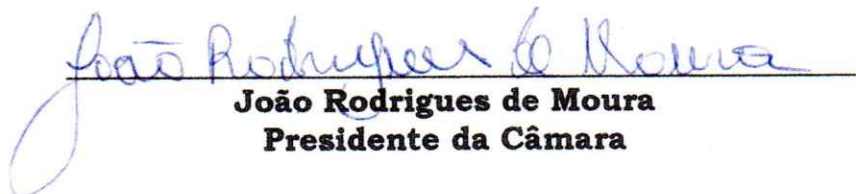 João Rodrigues de Moura
João Rodrigues de Moura
Presidente da Câmara